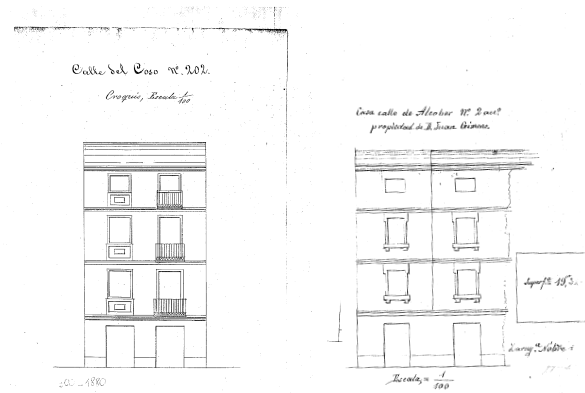 Calle del Coso Nº. 202.
Croquis, Escala 1/100
1880
Casa calle de Alcober Nº. 2 anº.
propiedad de D. Juan
Superf.ª 19,5
Zarag.ª
Escala, = 1/100